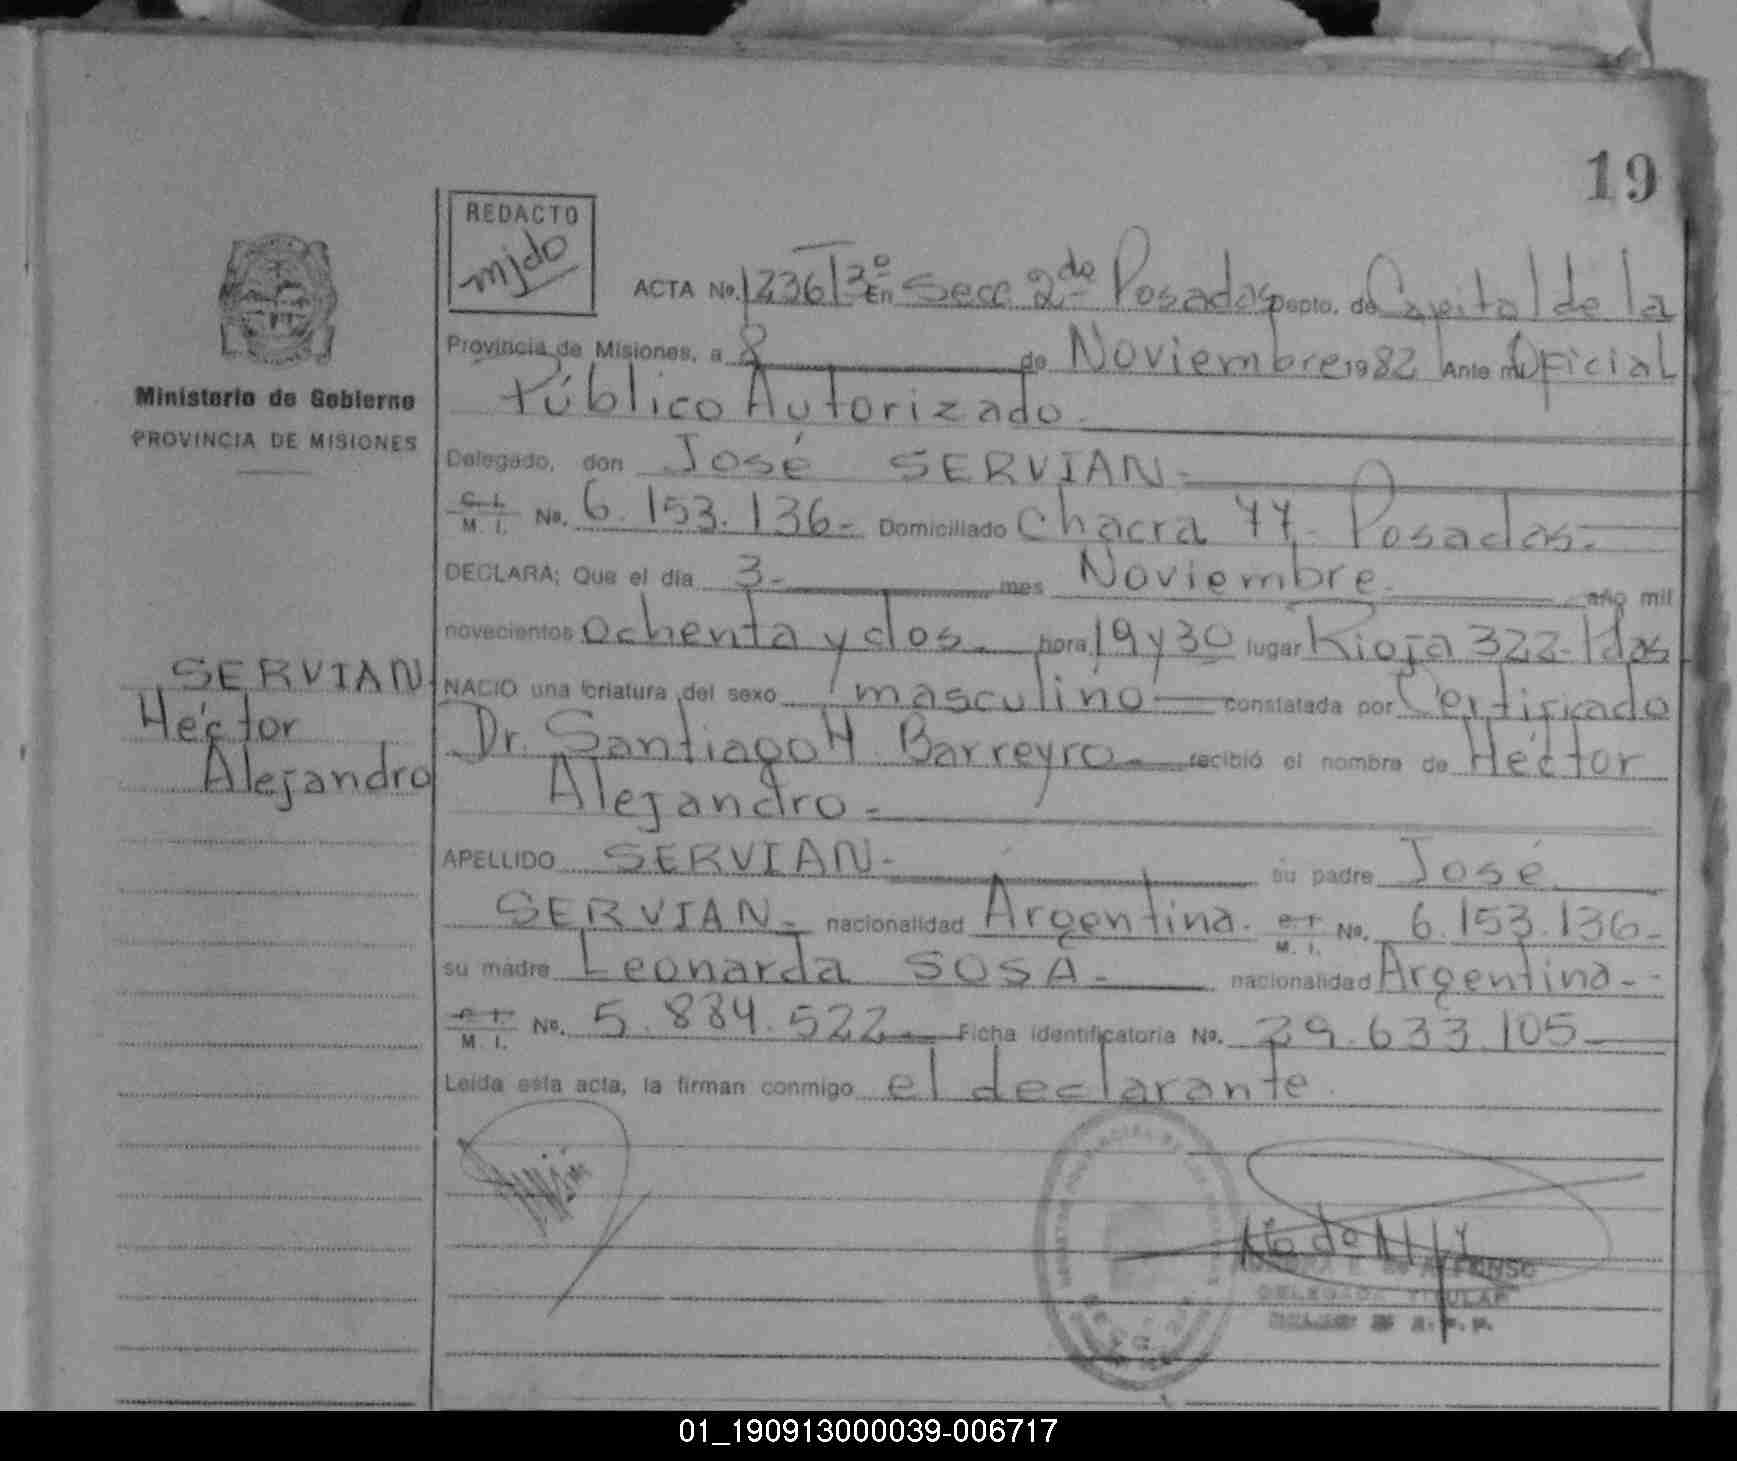 19
REDACTO
mjdo
ACTA No. 1236 T 3º En Secc 2da Posadas Depto. de Capital de la
Provincia de Misiones, a 8 de Noviembre 1982 Ante mí Oficial
Público Autorizado.
Ministerio de Gobierno
PROVINCIA DE MISIONES
Delegado, don José SERVIAN.
C. I.
M. I. No. 6.153.136- Domiciliado Chacra 77- Posadas-
DECLARA; Que el día 3- mes Noviembre. año mil
novecientos ochenta y dos. hora 19 y 30 lugar Rioja 322- Pdas
SERVIAN
Héctor
Alejandro
NACIO una criatura del sexo masculino constatada por Certificado
Dr. Santiago H. Barreyro- recibió el nombre de Héctor
Alejandro-
APELLIDO SERVIAN- su padre José
SERVIAN- nacionalidad Argentina. No. 6.153.136-
M. I.
su madre Leonarda SOSA- nacionalidad Argentina-
M. I. No. 5.884.522- Ficha identificatoria No. 29.633.105-
Leída esta acta, la firman conmigo el declarante.
DELEGADA TITULAR
01_190913000039-006717